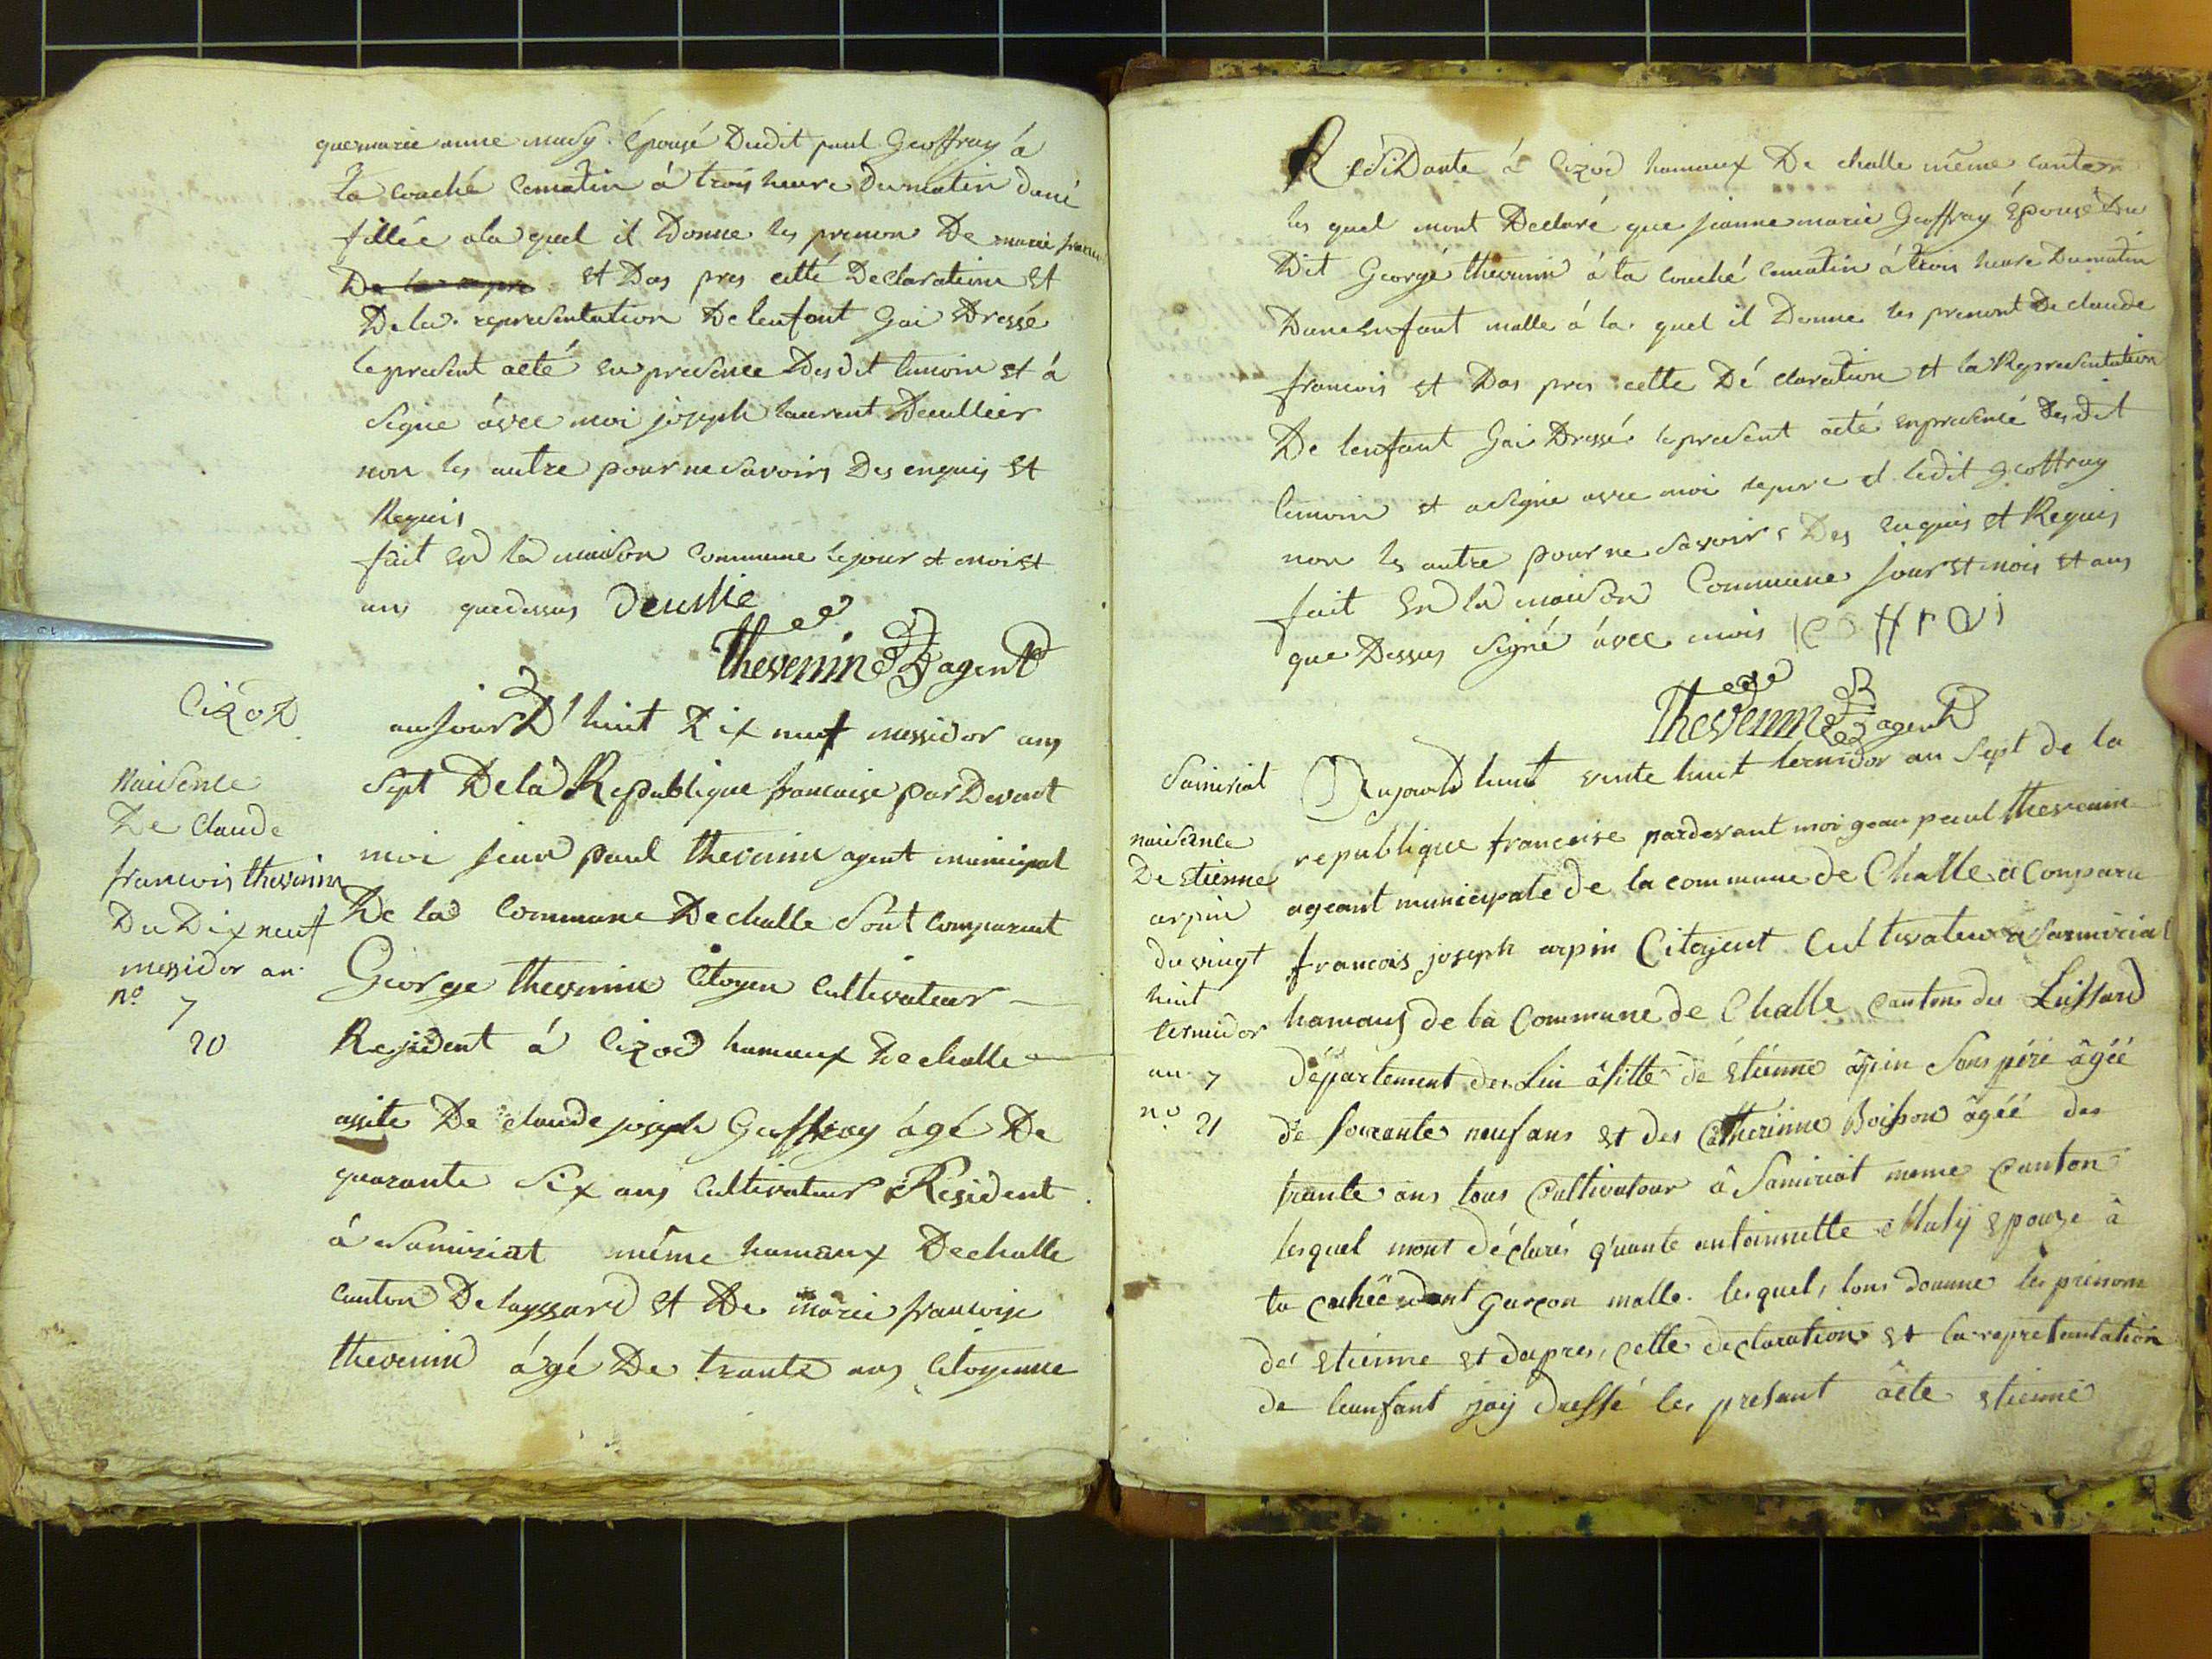 que marie anne mady Épousé Dudit paul Geoffray á
ta couché cematin á trois heure Dumatin dune
fillée ala quel il Donne les prenon De marie francoi
De la apre et Das pres cetté Declaration et
De la representation De lenfant Gai Dressé
le present acté en presence Desdit temoin et á
signe ávec moi joseph laurent Decullier
non les autre pour ne savoirs Des enquis et
Requis
fait en la maison commune le jour et mois et
ans que dessus
Thevenin agent
Cizod
naisence
De claude
francois thevenin
Du Dix neuf
messidor an
nº 7
20
aujourD'huit Dix neuf messidor ans
sept De la Republique francaise par Devant
moi jean paul thevenin agent municipal
De la commune De challe sont comparent
George thevenin Citoyen Cultivateur
Resident á Cizod hameaux De challe
assite De claude joseph Geoffray ágé De
quarante six ans cultivateur Resident
á samiriat même hameaux De challe
canton De layssard et De marie francoise
thevenin ágé De trante ans Citoyenne
ResiDante á Cizod hameaux De challe même canton
les quel mont Declaré que jeanne marie Geoffray Épouse Du
Dit Georgé thevenin á ta couché cematin á trois heure Dumatin
Dune enfant malle á la quel il Donne les prenont De claude
francois et Das pres cette Dé claration et la Representation
De lenfant Gai Dressé le present acté en presencé Desdit
temoin et a signe avec moi le pere et ledit geoffray
non les autre pour ne savoirs Des enquis et Requis
fait en la maison Commune jour et mois et ans
que Dessus signé ávec mois
Thevenin agent
Samiriat
naisance
De etienne
arpin
du vingt
huit
termidor
an 7
nº 21
Aujourdhuit vinte huit termidor an sept de la
republique francoise pardevant moi gean paul thevenin
ageant municipale de la commune de Challe a comparu
francois joseph arpin Citoyent cultivateur a Samiriat
hamaus de la Commune de Challe cantons des Leissard
département des Lin âsitte de étienne âpin sons pére âgéé
de soixante neuf ans et des Catherinne Boisson âgéé des
trante ans tous Cultivatour â Samiriat meme Canton
lesquel mont déclarés q'uante antoinnette Maly epouze â
ta cochéé dont garçon malle lesquel, tons donne les prénom
des etienne et dapres, cette declaration et la represantation
de leanfant jay dressé les presant âcte etienne